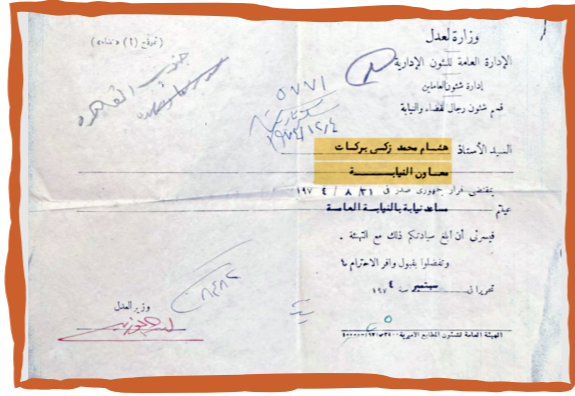 وزارة لعدل
(نموذج (١) قضاء)
الإدارة العامة للشئون الإدارية
إدارة شئون العاملين
قسم شئون رجال القضاء والنيابة
جنوب القاهرة
٥٧٧١
١٩٧٤/١٢/٤
السيد الأستاذ هشام محمد زكى بركات
معاون النيابة
بمقتضى قرار جمهورى صدر فى ٣١ / ٨ / ١٩٧٤
عينتم مساعد نيابة بالنيابة العامة
فيسرنى أن أبلغ سيادتكم ذلك مع التهنئة .
وتفضلوا بقبول وافر الاحترام ،
تحريرا فى سبتمبر سنة ١٩٧٤
وزير العدل
الهيئة العامة لشئون المطابع الأميرية